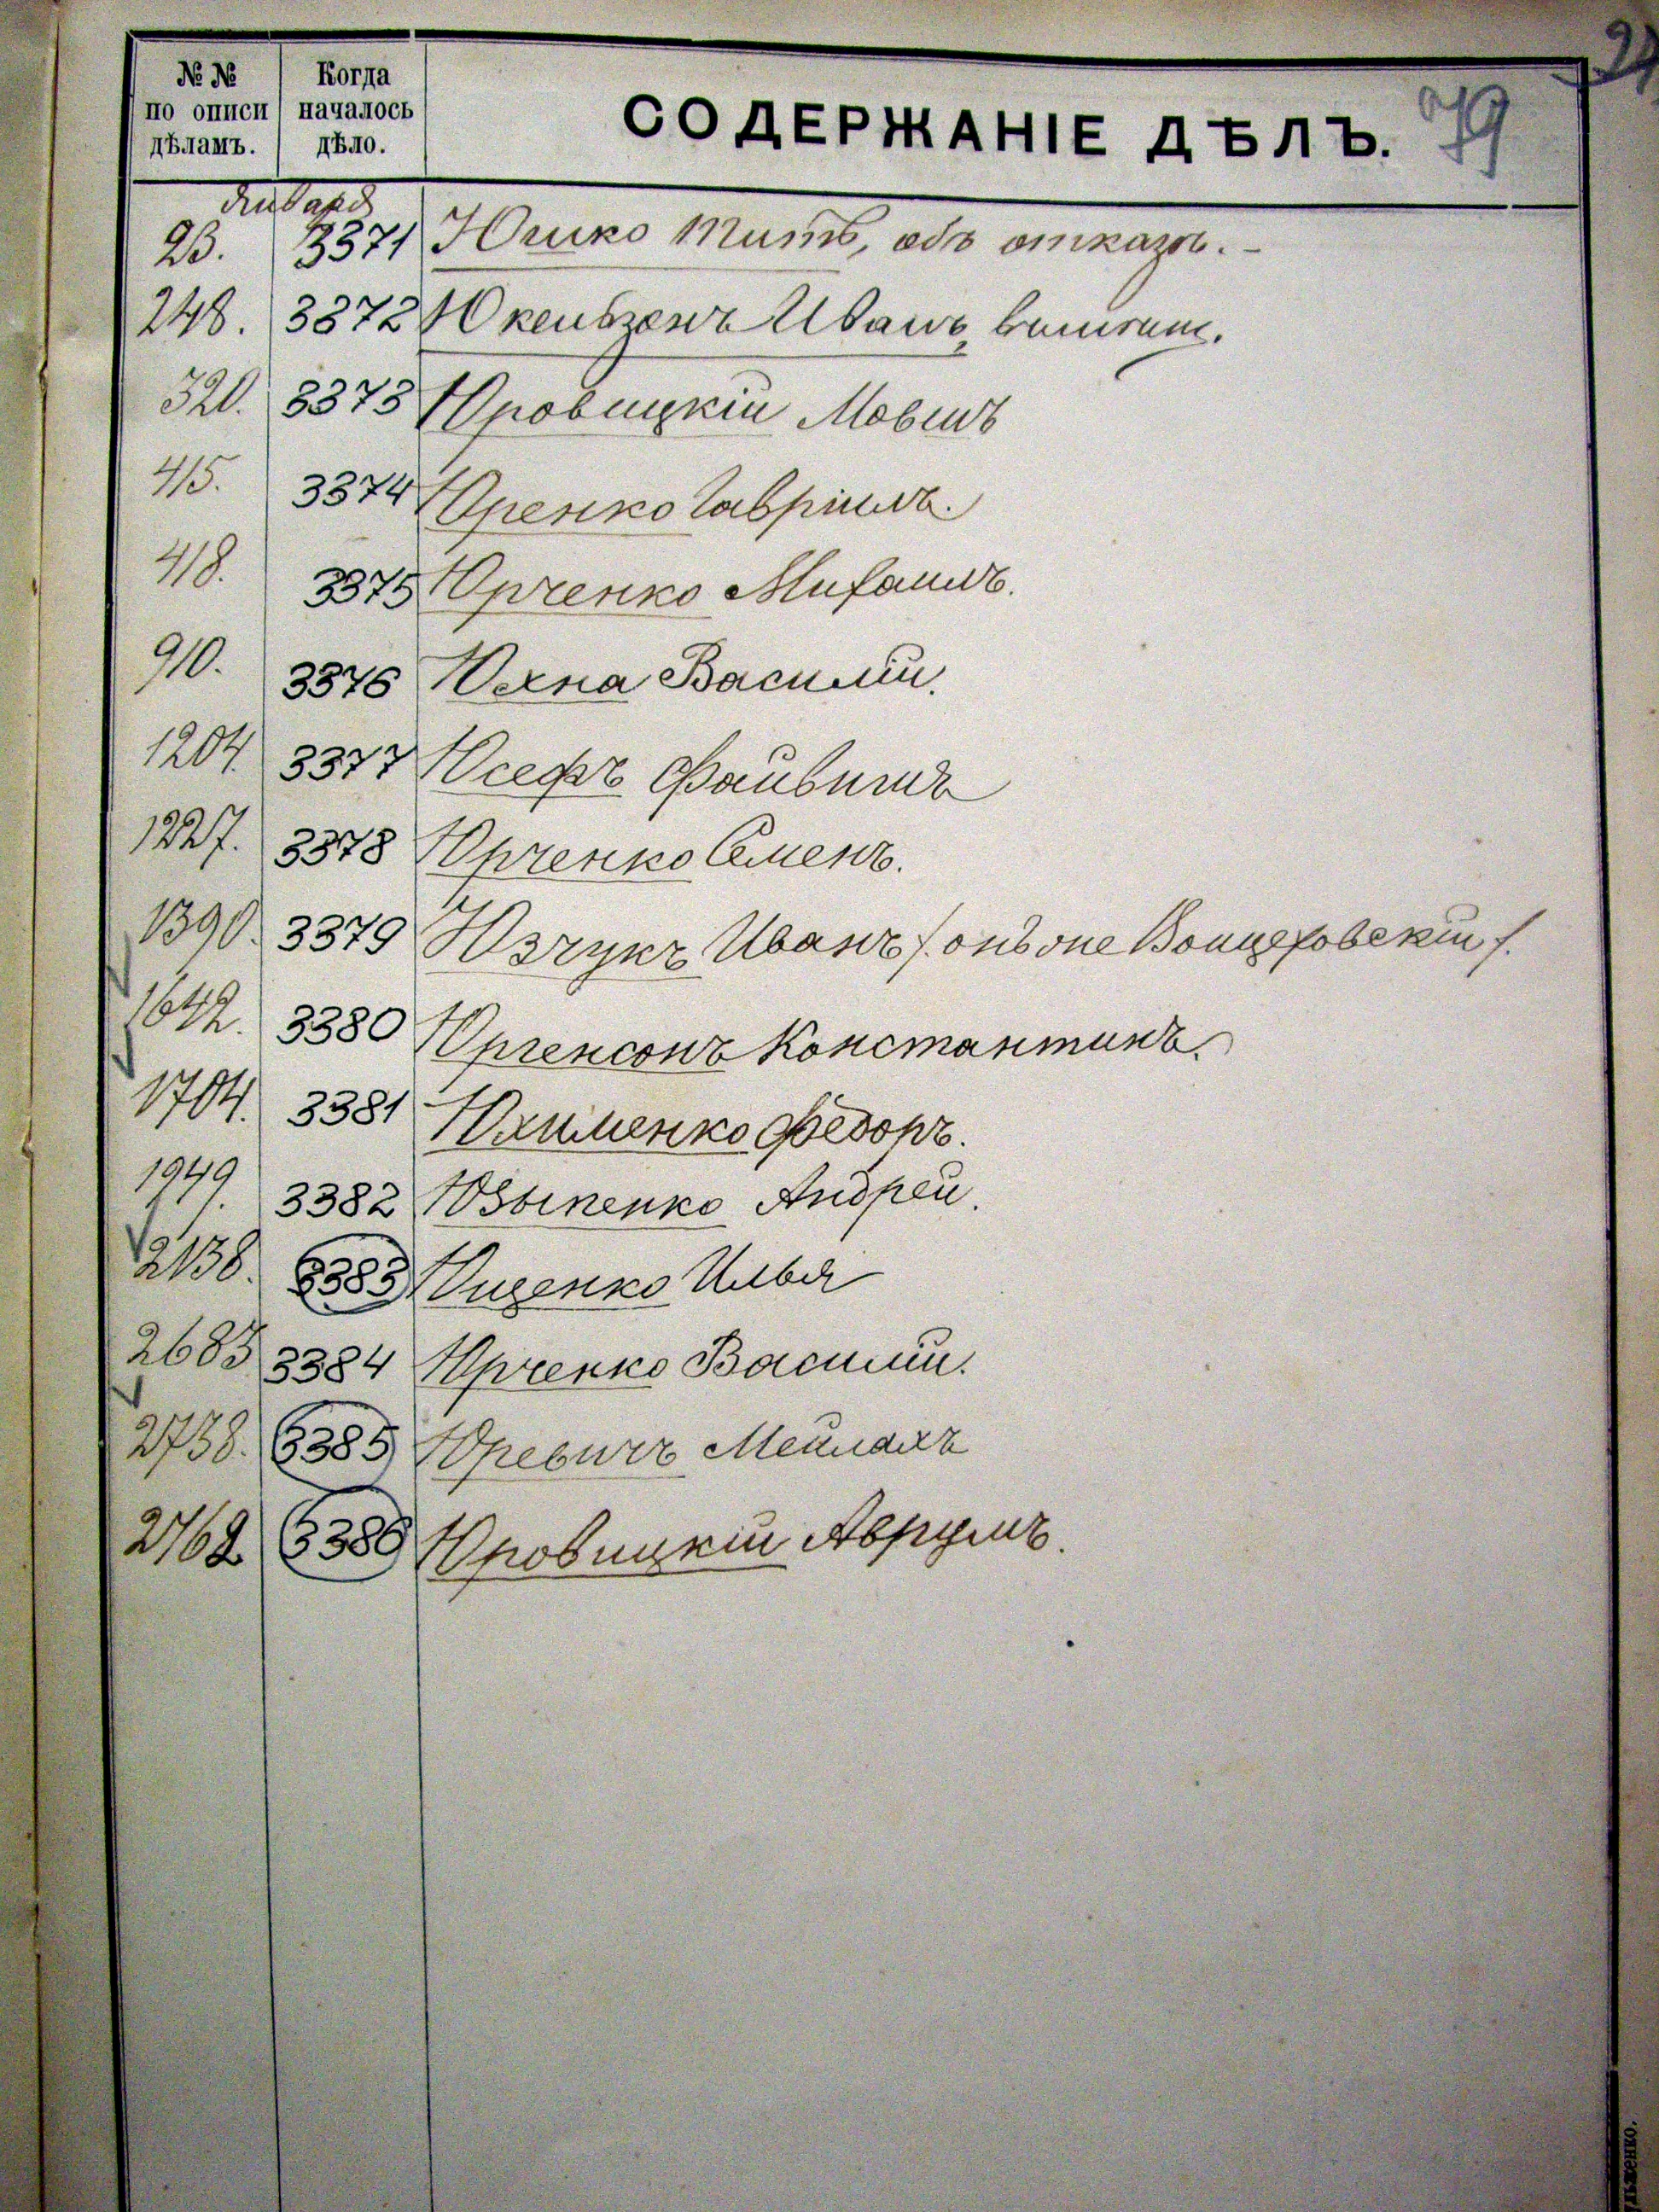 № № по описи дѣламъ.
Когда началось дѣло.
СОДЕРЖАНІЕ ДѢЛЪ.
79
января
23. 3371 Юшко Титъ, объ отказѣ. -
248. 3372 Иванъ,
320. 3373 Юровицкій Мовша
415. 3374 Юренко Гавріилъ.
418. 3375 Юрченко Михаилъ.
910. 3376 Юхна Василій.
1204. 3377 Юсефъ Файвишъ
1227. 3378 Юрченко Семенъ.
1390. 3379 Юзчукъ Иванъ /. онъ же Войцеховскій /.
1642. 3380 Юргенсонъ Константинъ.
1704. 3381 Юхименко Федоръ.
1949. 3382 Андрей.
2138. 3383 Ющенко Илья
2683 3384 Юрченко Василій.
2738. 3385 Юревичъ Мейлахъ
2762 3386 Юровицкій Аврумъ.